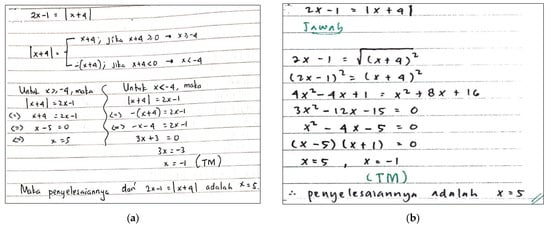 2x-1 = |x+4|
|x+4| = { x+4; jika x+4 ≥ 0 → x ≥ -4
-(x+4); jika x+4 < 0 → x < -4
Untuk x ≥ -4, maka
|x+4| = 2x-1
(=) x+4 = 2x-1
(=) x-5 = 0
(=) x = 5
Untuk x < -4, maka
|x+4| = 2x-1
(=) -(x+4) = 2x-1
(=) -x-4 = 2x-1
3x+3 = 0
3x = -3
x = -1 (TM)
Maka penyelesaiannya dari 2x-1 = |x+4| adalah x=5.
(a)
2x-1 = |x+4|
Jawab
2x-1 = √(x+4)²
(2x-1)² = (x+4)²
4x²-4x+1 = x²+8x+16
3x²-12x-15 = 0
x²-4x-5 = 0
(x-5)(x+1) = 0
x=5 , x=-1
(TM)
∴ penyelesaiannya adalah x=5
(b)